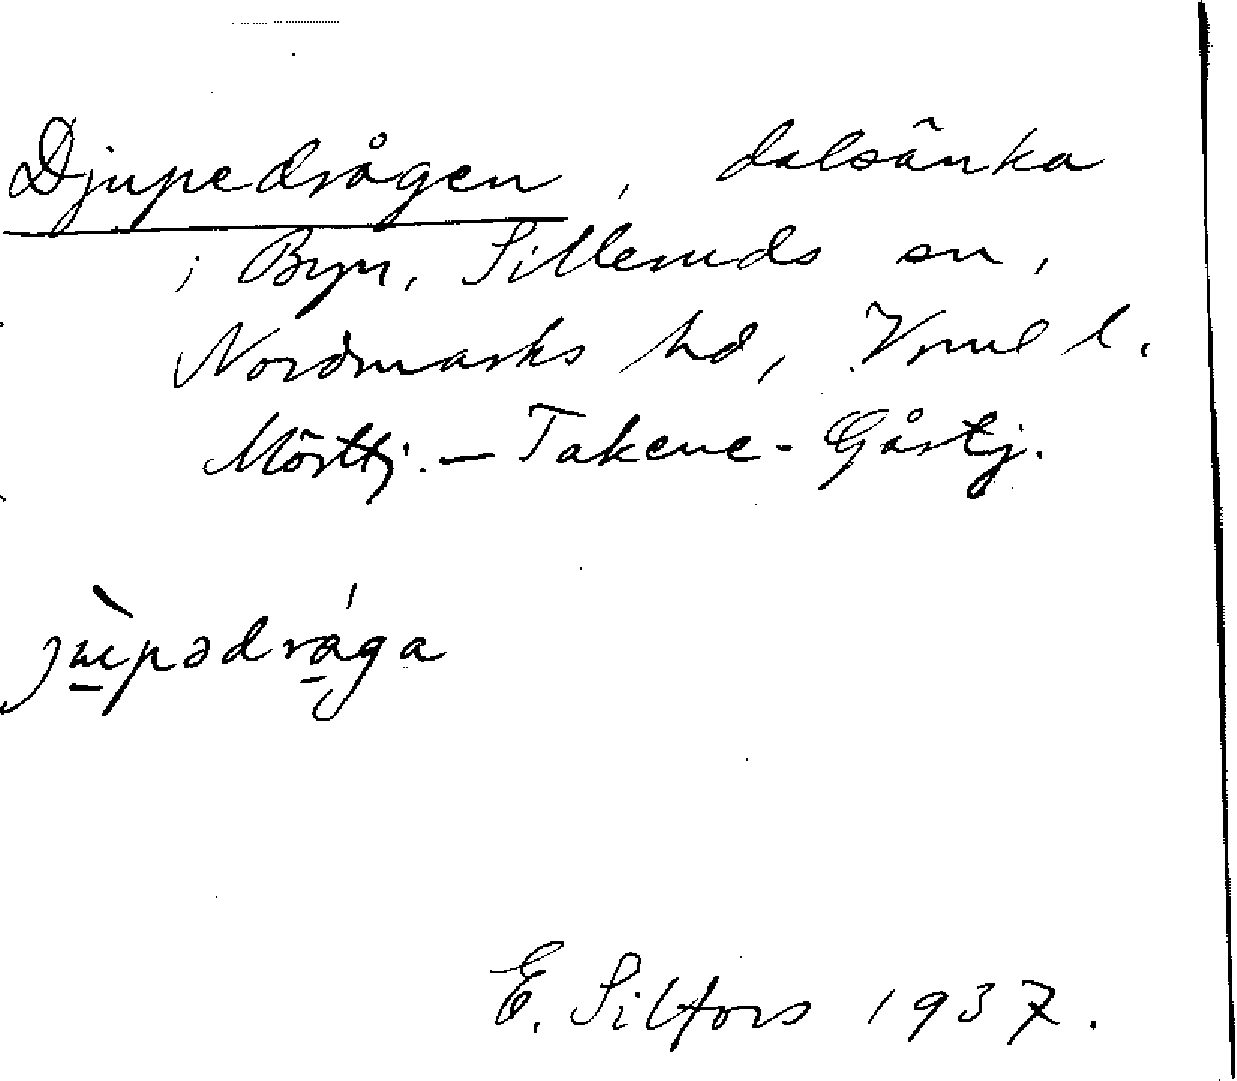 Djupedrågen, dalsänka
i Byn, Silleruds sn,
Nordmarks hd, Vrml l.
Mörttj. – Takene - Gåstj.
jɯ̀pədrága
E. Silfors 1937.